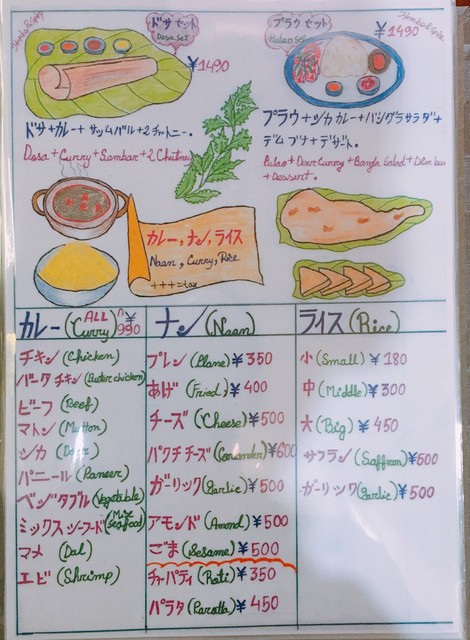 Herbs&Spice
ドサ セット
Dosa Set
¥1490
プラウ セット
Pulao Set
¥1490
Herbs&Spice
ドサ+カレー+サッムバル+2チャトニー.
Dosa+Curry+Sambar+2 Chutney
プラウ+ツカ カレー+バングラサラダ+
デム ブナ+デザート.
Pulao+Deer Curry+Bangla Salad+Dim buna
+Dessert.
カレー,ナン,ライス
Naan, Curry, Rice
+++=tax
カレー(Curry) ALL ¥990
チキン(Chicken)
バータチキン(Buter chicken)
ビーフ(Beef)
マトン(Mutton)
シカ(Deer)
パニール(Paneer)
ベジタブル(Vegetable)
ミックスシーフード(Mix Seafood)
マメ(Dal)
エビ(Shrimp)
ナン(Naan)
プレン(Plane)¥350
あげ(Fried)¥400
チーズ(Cheese)¥500
パクチチーズ(Coriander)¥600
ガーリック(Garlic)¥500
アモンド(Amond)¥500
ごま(Sesame)¥500
チャパティ(Roti)¥350
パラタ(Parotta)¥450
ライス(Rice)
小(Small)¥180
中(Middle)¥300
大(Big)¥450
サフラン(Saffran)¥500
ガーリック(Garlic)¥500